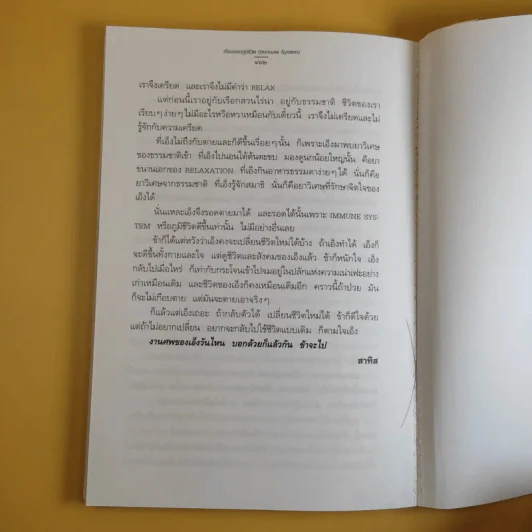 เรียนรอบภูมิชีวิต (Immune System)
๑๖๒
เราจึงเครียด และเราจึงไม่มีคำว่า RELAX
แต่ก่อนนี้เราอยู่กับเรือกสวนไร่นา อยู่กับธรรมชาติ ชีวิตของเรา
เรียบๆง่ายๆไม่มีอะไรหวือหวาเหมือนกับเดี๋ยวนี้ เราจึงไม่เครียดและไม่
รู้จักกับความเครียด
ที่เอ็งไม่ถึงกับตายและก็ดีขึ้นเรื่อยๆนั้น ก็เพราะเอ็งมาพบยาวิเศษ
ของธรรมชาติเข้า ที่เอ็งไปนอนใต้ต้นตะขบ มองดูนกน้อยใหญ่นั้น คือยา
ขนานเอกของ RELAXATION ที่เอ็งกินอาหารธรรมดาง่ายๆได้ นั่นก็คือ
ยาวิเศษจากธรรมชาติ ที่เอ็งรู้จักสมาธิ นั่นก็คือยาวิเศษที่รักษาจิตใจของ
เอ็งได้
นั่นแหละเอ็งจึงรอดตายมาได้ และรอดได้นั้นเพราะ IMMUNE SYS-
TEM หรือภูมิชีวิตดีขึ้นเท่านั้น ไม่มีอย่างอื่นเลย
ข้าก็ได้แต่หวังว่าเอ็งคงจะเปลี่ยนชีวิตใหม่ได้บ้าง ถ้าเอ็งทำได้ เอ็งก็
จะดีขึ้นทั้งกายและใจ แต่ดูชีวิตและสังคมของเอ็งแล้ว ข้าก็หนักใจ เอ็ง
กลับไปเมื่อไหร่ ก็เท่ากับกระโจนเข้าไปจมอยู่ในปลักแห่งความเน่าเฟะอย่าง
เก่าเหมือนเดิม และชีวิตของเอ็งก็คงเหมือนเดิมอีก คราวนี้ถ้าป่วย มัน
ก็จะไม่เกือบตาย แต่มันจะตายเอาจริงๆ
ก็แล้วแต่เอ็งเถอะ ถ้ากลับตัวได้ เปลี่ยนชีวิตใหม่ได้ ข้าก็ดีใจด้วย
แต่ถ้าไม่อยากเปลี่ยน อยากจะกลับไปใช้ชีวิตแบบเดิม ก็ตามใจเอ็ง
งานศพของเอ็งวันไหน บอกด้วยก็แล้วกัน ข้าจะไป
สาทิส